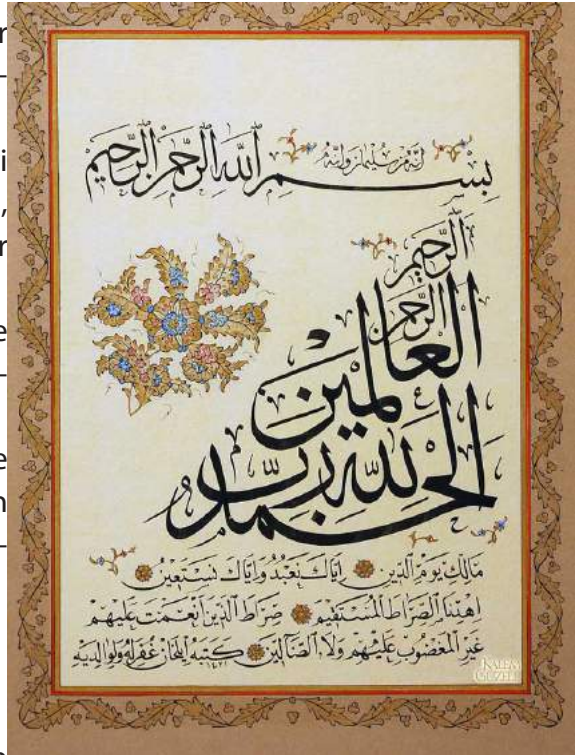 إنه من سليمان وإنه
بسم الله الرحمن الرحيم
الحمد لله رب
العالمين
الرحمن
الرحيم
مالك يوم الدين إياك نعبد وإياك نستعين
اهدنا الصراط المستقيم صراط الذين أنعمت عليهم
غير المغضوب عليهم ولا الضالين كتبه ايلخان غفر له ولوالديه
KALEM
GUZELI